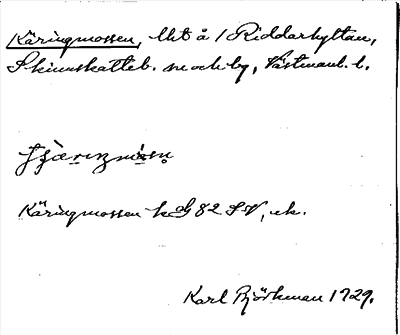 Käringmossen, lht å 1 Riddarhyttan,
Skinnskatteb. sn och bg, Västmanl. l.
Käringmossen k 82 SV, ek.
Karl Björkman 1929.